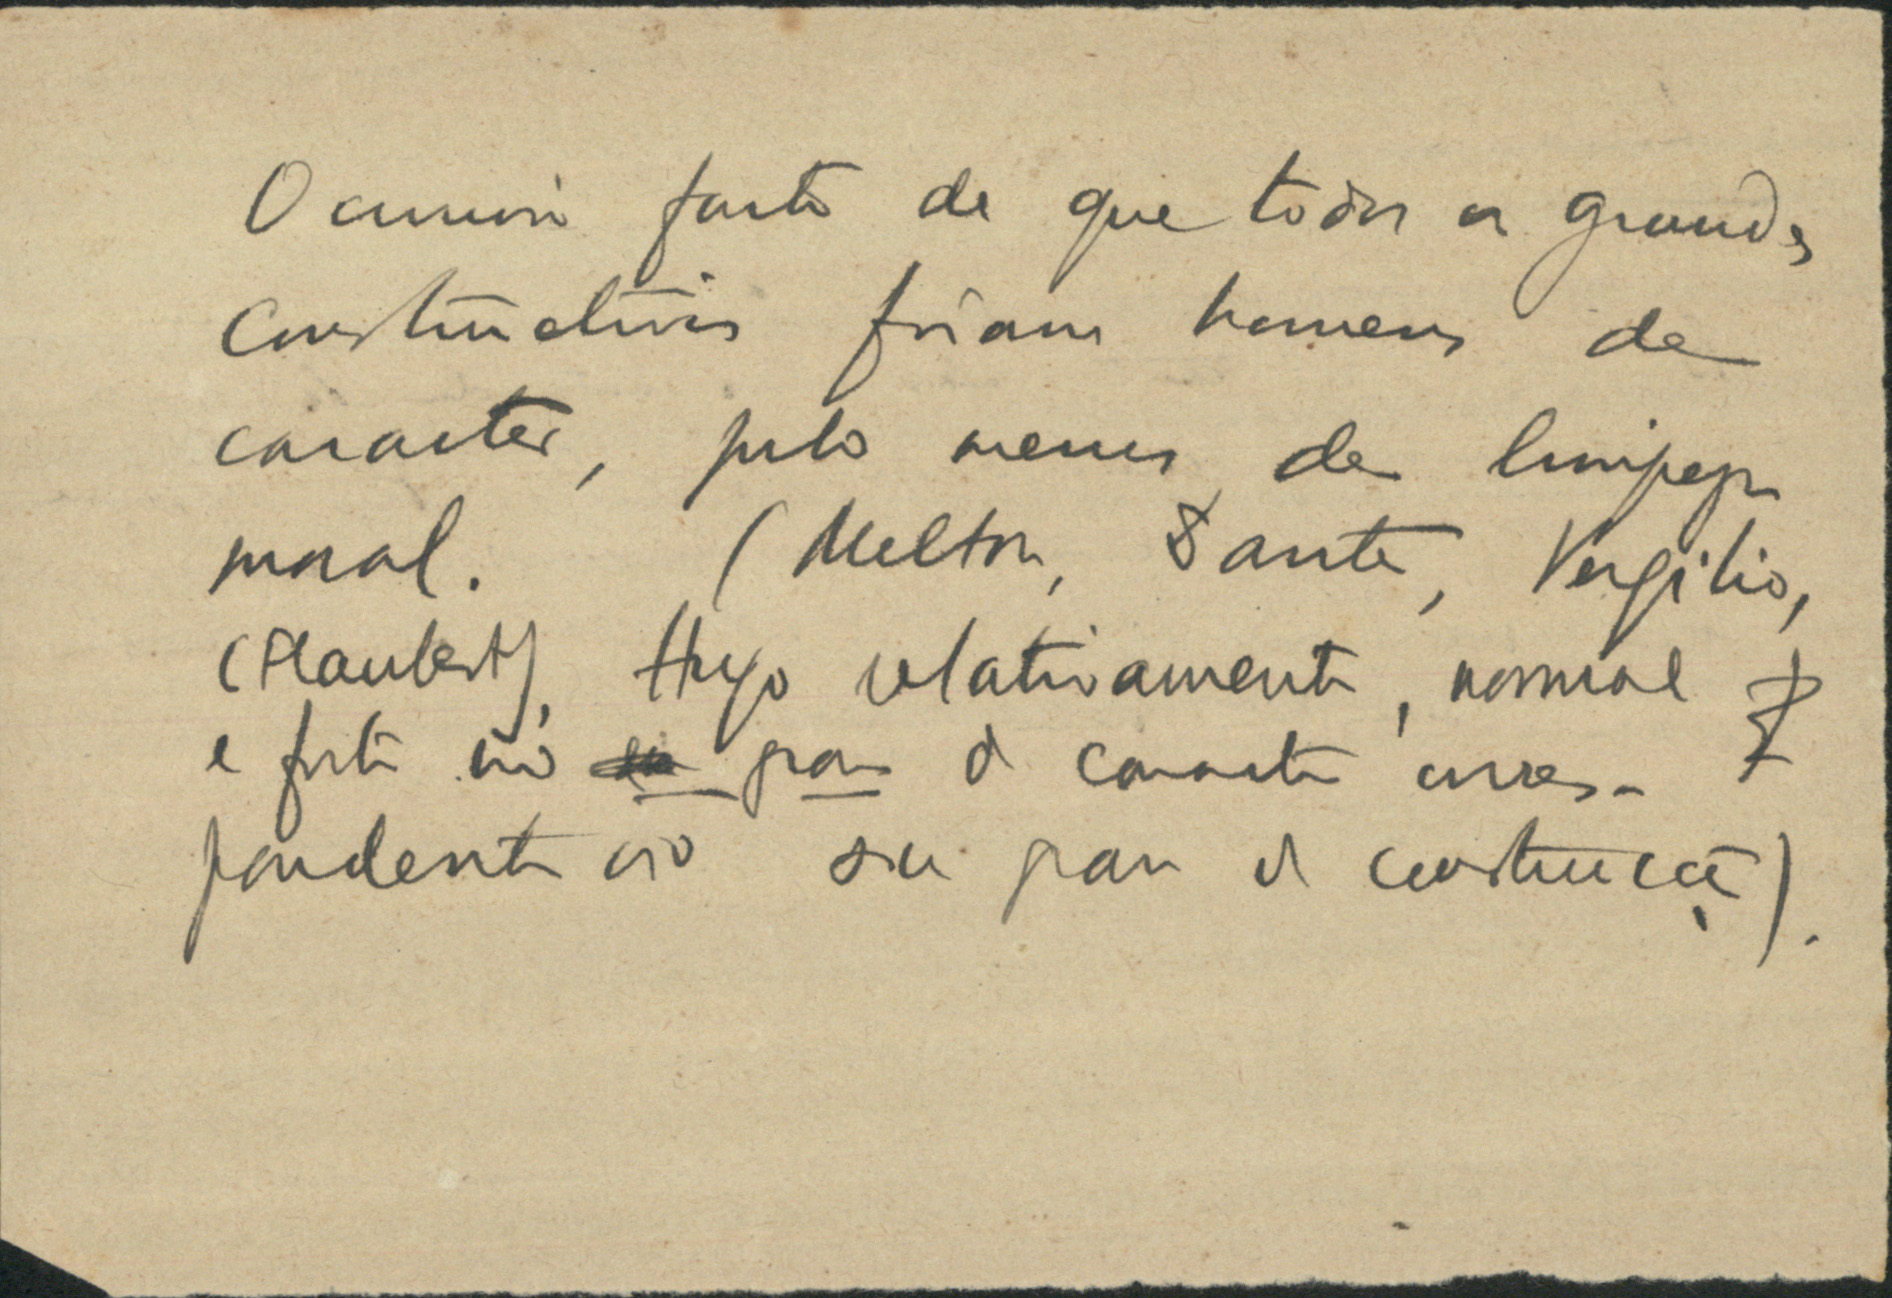 O curioso facto de que todos os grandes
constructivos foram homens de
caracter, pelo menos de limpeza
moral. (Milton, Dante, Vergilio,
(Flaubert), Hugo relativamente, normal
e forte no grau de caracter corres-
pondente ao seu grau de construcção).